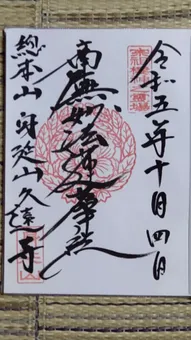 令和五年十月四日
南無妙法蓮華経
総本山 身延山久遠寺